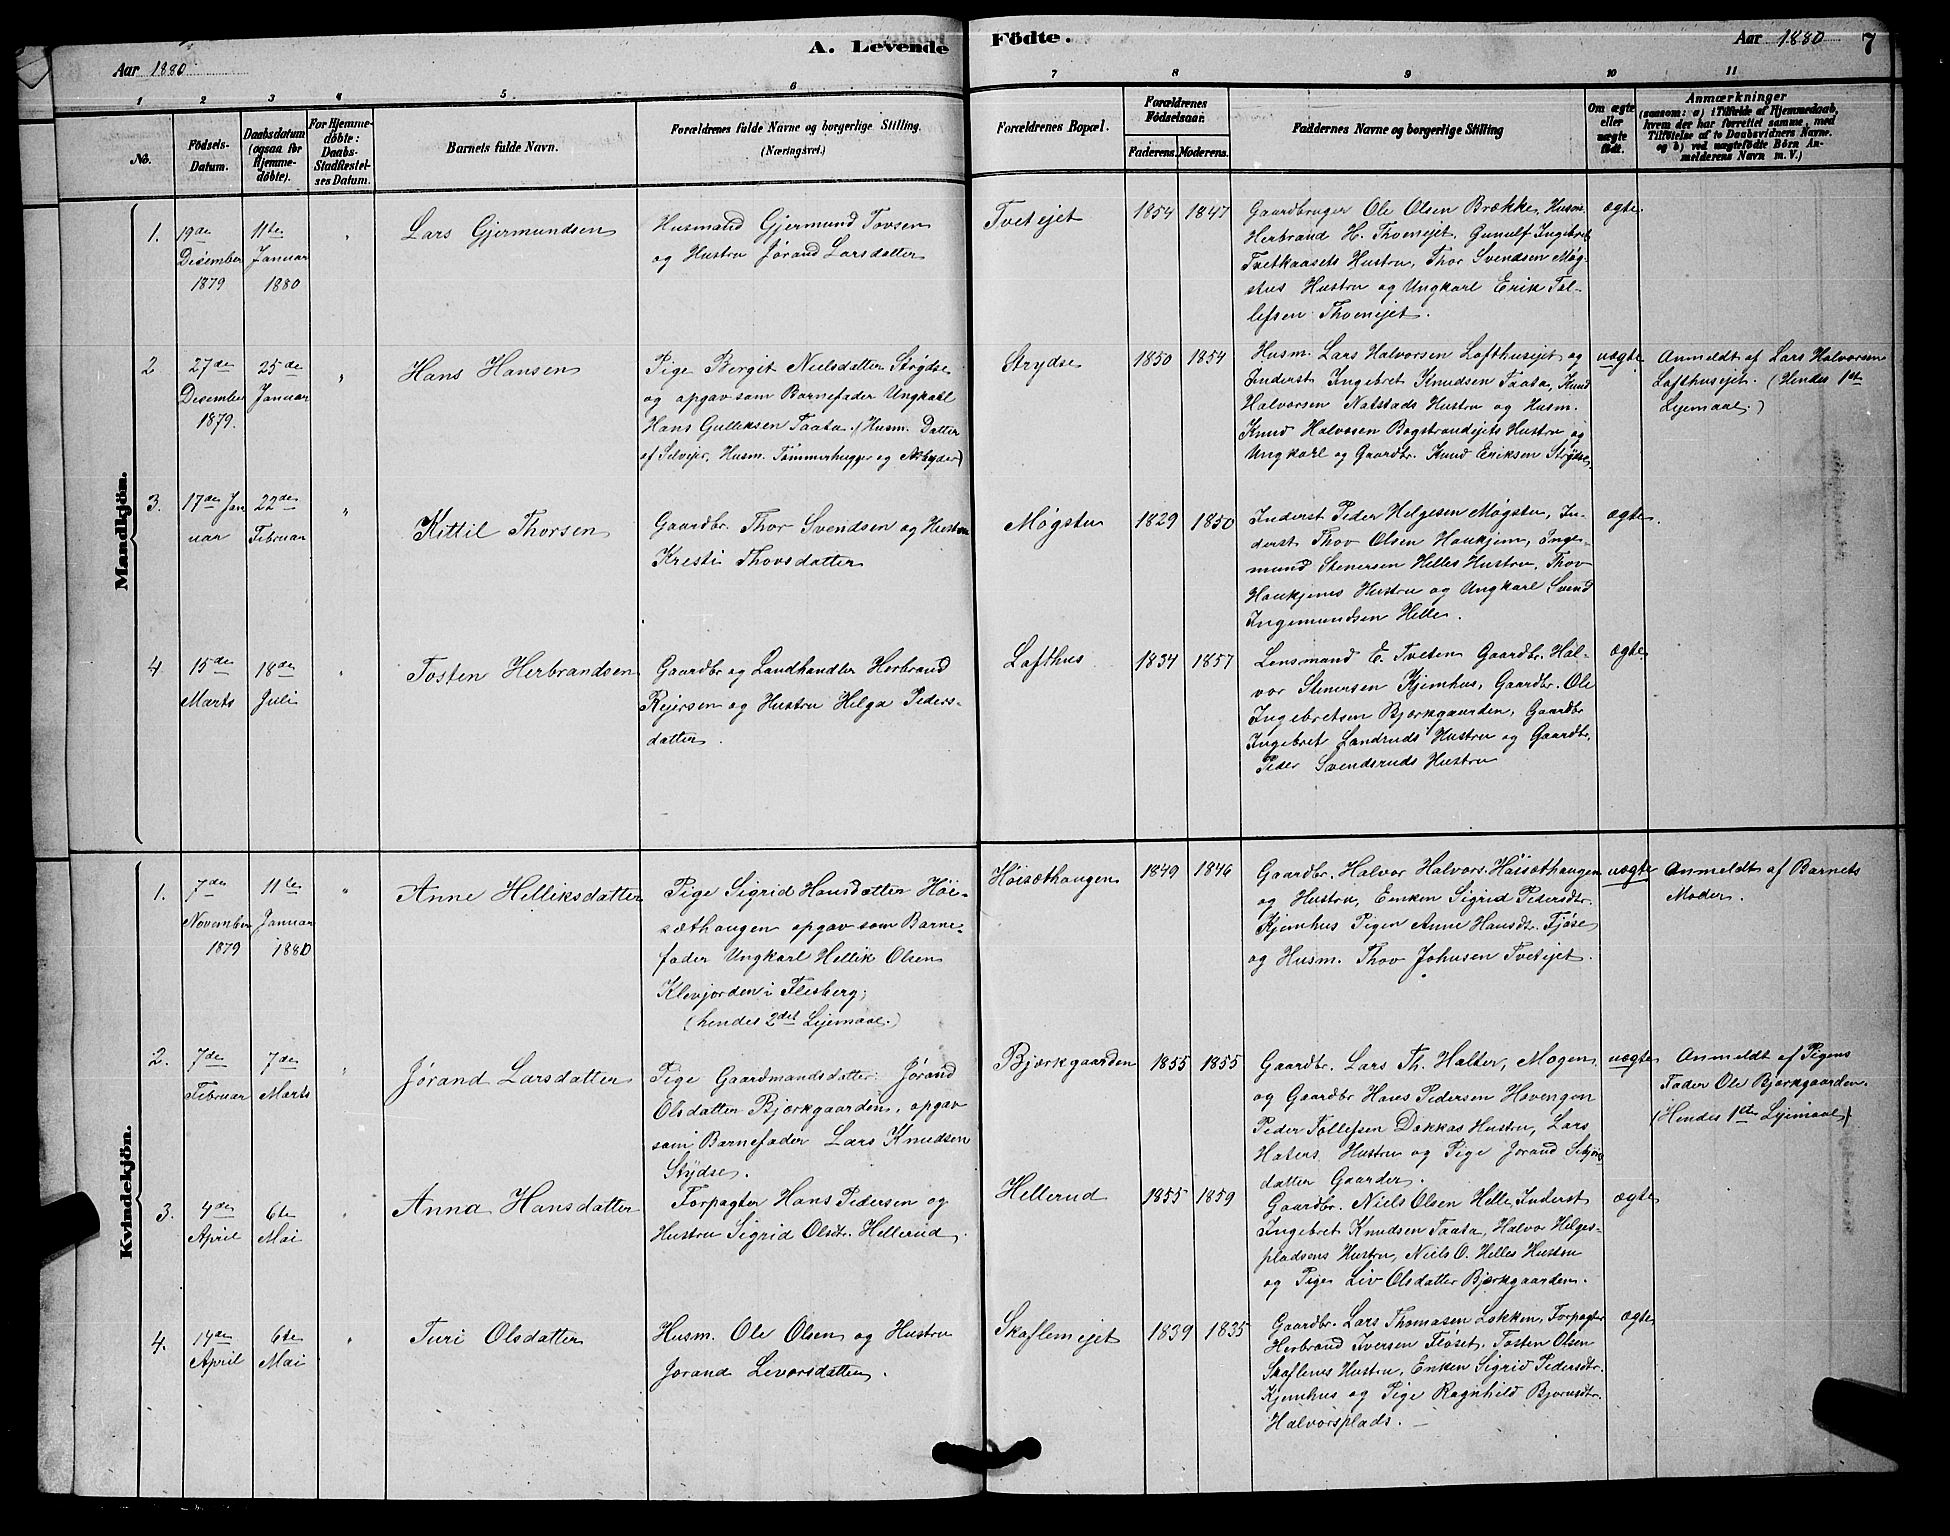 A. Levende Födte.
Aar 1880
Aar 1880
7
1 2 3 4 5 6 7 8 9 10 11
No.
Födsels-
Datum.
Daabsdatum
(ogsaa for
Hjemme-
døbte).
For Hjemme-
døbte:
Daabs-
Stadfæstel-
ses Datum.
Barnets fulde Navn.
Forældrenes fulde Navne og borgerlige Stilling.
(Næringsvei.)
Forældrenes Bopæl.
Forældrenes
Fødselsaar.
Faderens. Moderens.
Faddernes Navne og borgerlige Stilling
Om ægte
eller
uægte
født.
Anmærkninger
(saasom: a) i Tilfælde af Hjemmedaab,
hvem der har forrettet samme, med
Tilføielse af to Daabsvidners Navne.
og b) ved uægtefødte Börn An-
melderens Navn m. V.)
Mandkjön.
1.
19de
Desember
1879
11te
Januar
1880
"
Lars Gjermundsen
Husmand Gjermund Tovsen
og Hustru Jørand Larsdatter
Tvetejet
1854 1847
Gaardbruger Ole Olsen Brække, Husm.
Herbrand H. Thoenejet, Gunulf Ingebret
Tvetkaasets Hustru, Thor Svendsen Møg-
stus Hustru og Ungkarl Erik Tol-
lefsen Thoenejet.
ægte
2
27de
Desember
1879.
25de
Januar
"
Hans Hansen
Pige Bergit Nielsdatter Strydse
og opgav som Barnefader Ungkarl
Hans Gulliksen Taata. (Husm. Datter
af Selveier, Husm. Tømmerhugger og Arbyder)
Strydse
1850 1854
Husm. Lars Halvorsen Lofthusejet og
Inderst Ingebret Knudsen Taata, Knud
Halvorsen Natstads Hustru og Husm.
Knud Halvosen Bogstrandejets Hustru og
Ungkarl og Gaardbr. Knud Eriksen Strydse,
uægte
Anmeldt af Lars Halvorsen
Lofthusejet. (Hendes 1ste
Lejemaal.)
3.
17de Jan
uar
22de
Februar
"
Kittil Thorsen
Gaardbr. Thor Svendsen og Hustru
Kresti Thovsdatter
Møgstu
1829 1850
Inderst Peder Helgesen Møgstu, In-
derst Thov Olsen Haukjem, Inge-
mund Stenersen Helles Hustru, Thov
Haukjems Hustru og Ungkarl Svend
Ingemundsen Helle.
ægte.
4.
15de
Marts
18de
Juli
"
Tosten Herbrandsen
Gaardbr og Landhandler Herbrand
Rejersen og Hustru Helga Peders-
datter.
Lofthus
1834 1857
Lensmand E. Tveten Gaardbr. Hal-
vor Stenersen Kjemhus, Gaardbr. Ole
Ingebretsen Bjørkgaarden, Gaardbr
Ingebret Landruds Hustru og Gaardbr.
Peder Svendsruds Hustru
ægte
Kvindekjön.
1.
7de
November
1879
11te
Januar
1880
"
Anne Helliksdatter
Pige Sigrid Hansdatter Høi-
sæthaugen opgav som Barne-
fader Ungkarl Hellik Olsen
Klevjorden i Flesberg;
(hendes 2det Lejemaal.)
Høisæthaugen
1849 1846
Gaardbr. Halvor Halvors. Høisæthaugen
og Hustru, Enken Sigrid Pedersdtr.
Kjemhus Pigen Anne Hansdtr. Fjøse
og Husm. Thov Johnsen Tvetejet.
uægte
Anmeldt af Barnets
Moder.
2.
7de
Februar
7de
Marts
"
Jørand Larsdatter
Pige Gaardmandsdatter Jørand
Olsdatter Bjørkgaarden, opgav
som Barnefader Lars Knudsen
Stydse.
Bjørkgaarden
1855 1855
Gaardbr. Lars Th. Halter, Mogen
og Gaardbr Hans Pedersen Hovengen
Peder Tollefsen Dokkas Hustru, Lars
Haters Hustru og Pige Jørand
datter Gaarder.
uægte
Anmeldt af Pigens
Fader Ole Bjørkgaarden.
(Hendes 1ste Lejemaal)
3.
4de
April
6te
Mai
"
Anna Hansdatter
Forpagter Hans Pedersen og
Hustru Sigrid Olsdtr. Hellerud.
Hellerud
1855 1859
Gaardbr. Niels Olsen Helle, Inderst
Ingebret Knudsen Taata, Halvor Helges-
pladsens Hustru, Niels O. Helles Hustru
og Pige Liv Olsdatter Bjørkgaarden.
ægte
4.
14de
April
6te
Mai
"
Turi Olsdatter
Husm. Ole Olsen og Hustru
Jørand Levorsdatter.
Skaflemejet
1839 1835
Gaardbr. Lars Thomasen Løkken, Forpagter
Herbrand Iversen Fløset, Tosten Olsen
Skaflems Hustru, Enken Sigrid Pedersdtr.
Kjemhus og Pige Ragnhild Bjørnsdtr.
Halvorsplads. —
ægte